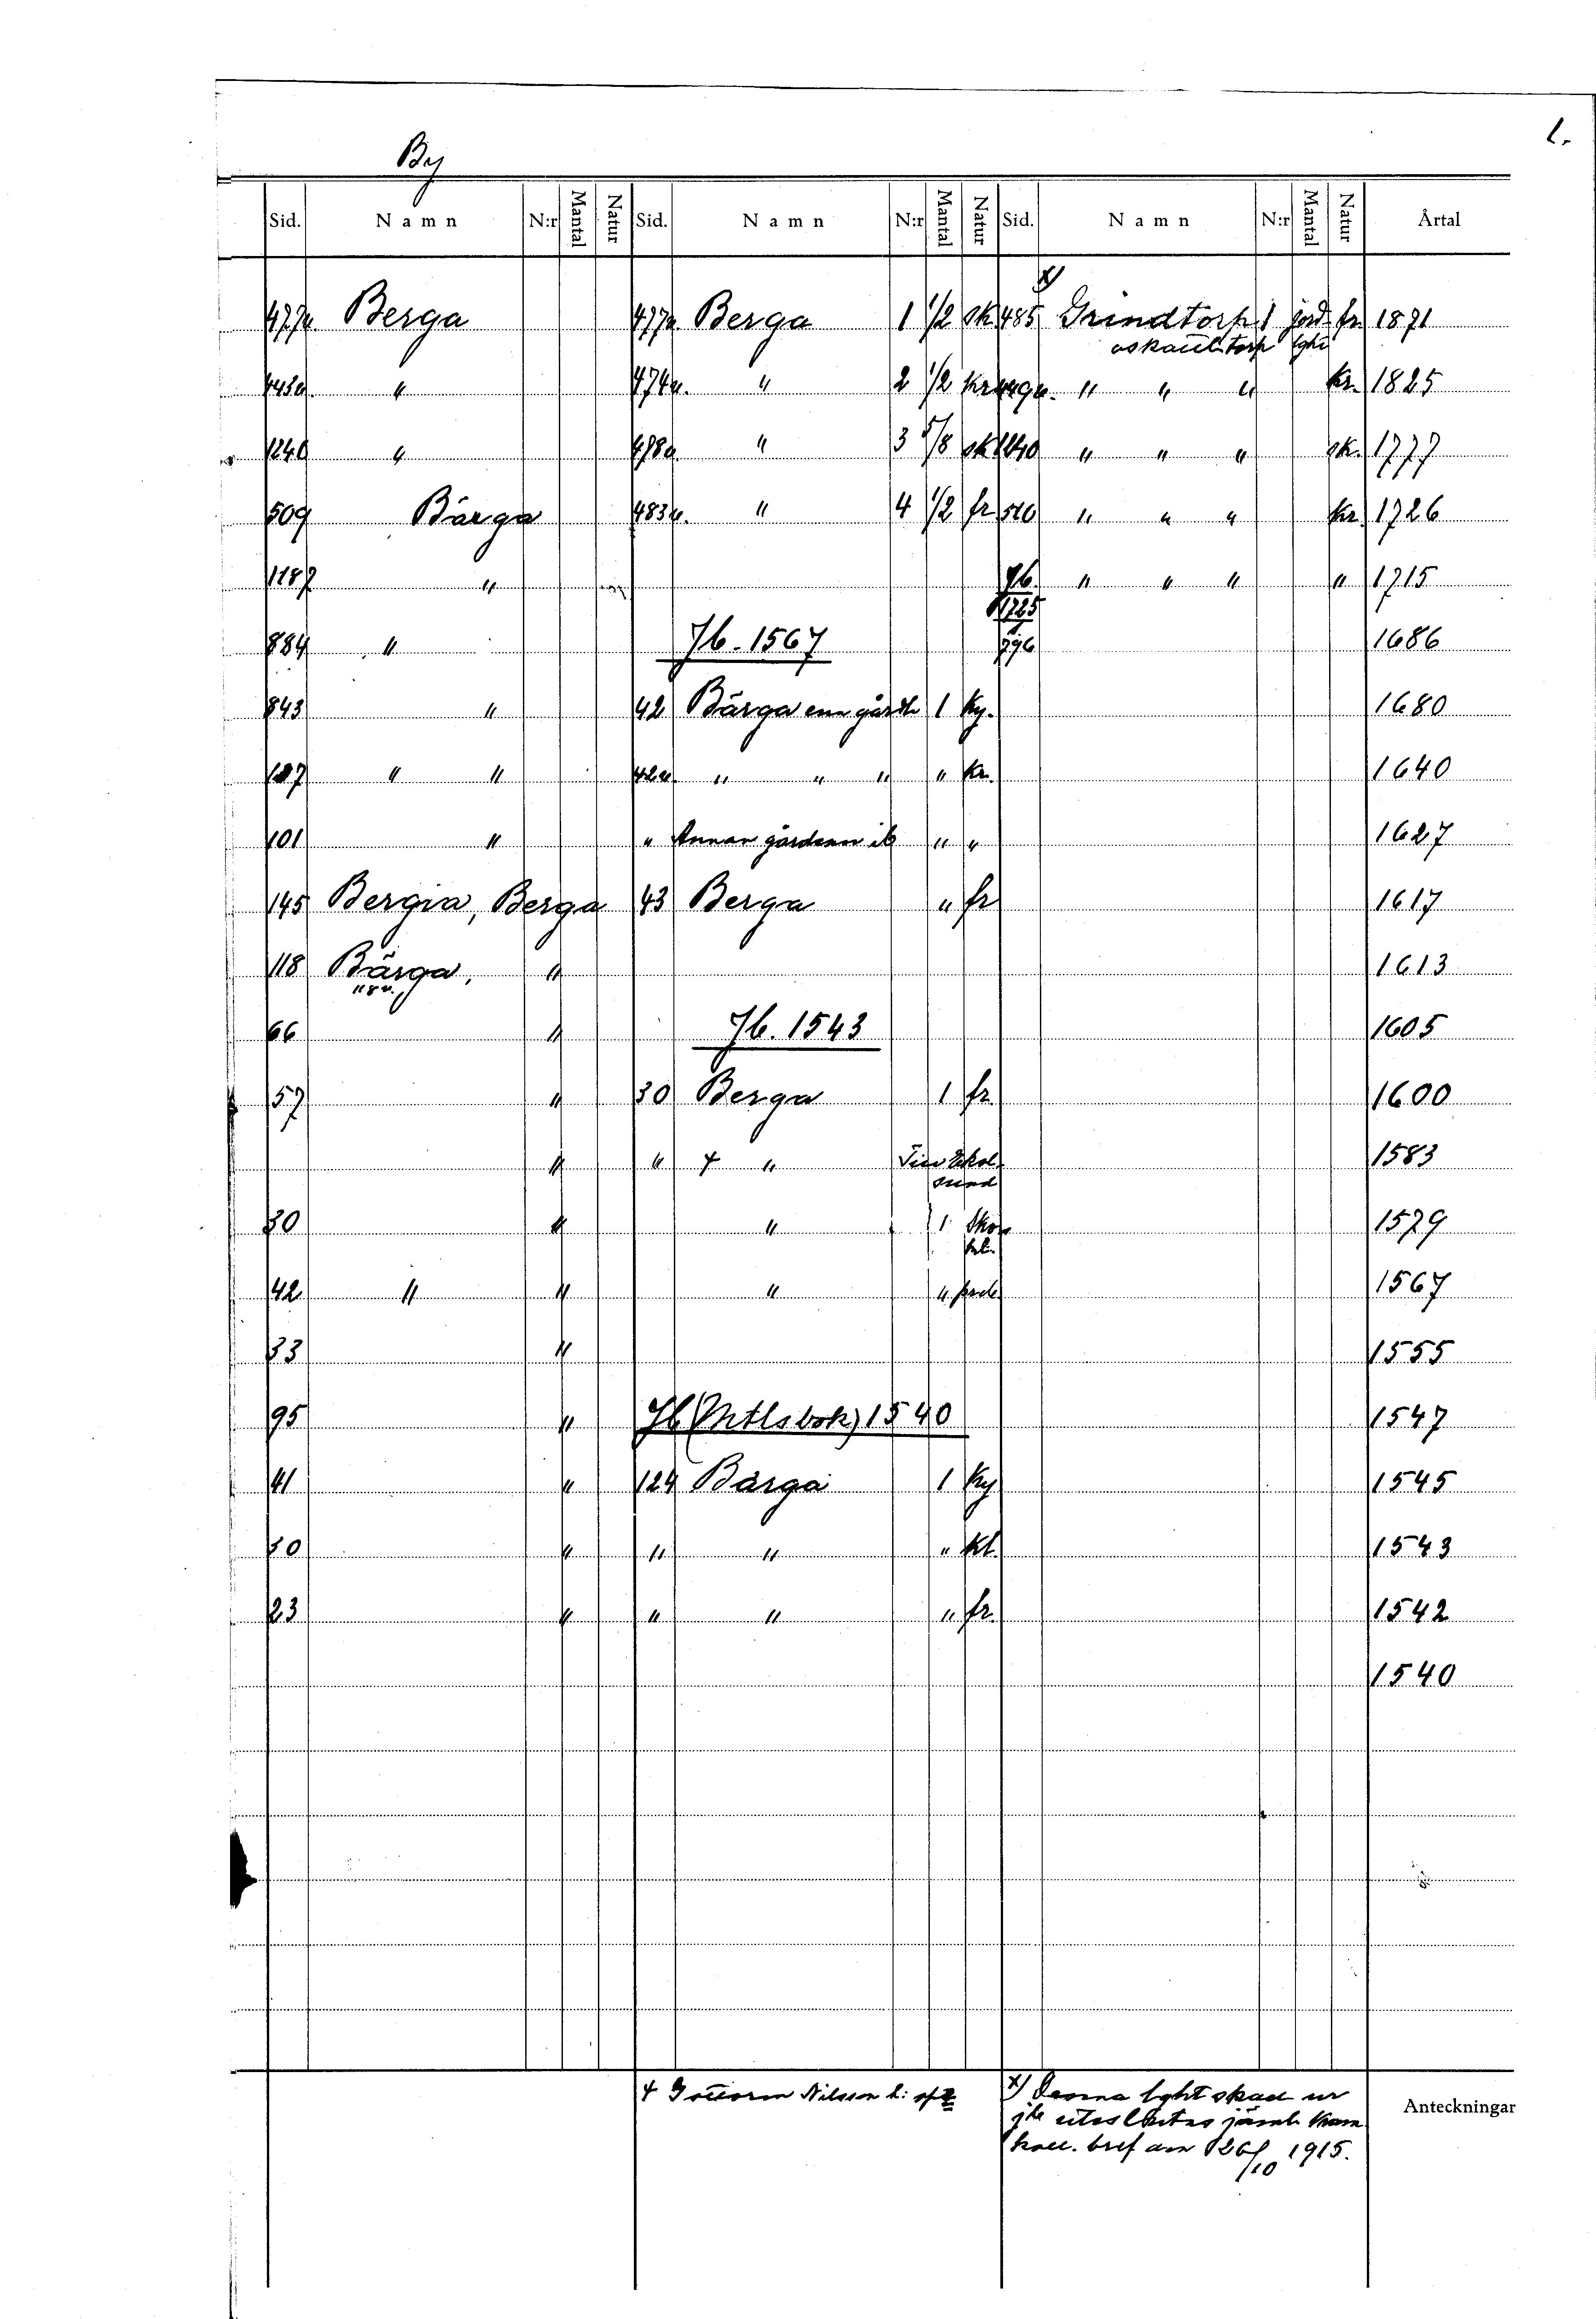 1.
By
Sid. Namn N:r Mantal Natur Sid. Namn N:r Mantal Natur Sid. Namn N:r Mantal Natur Årtal
x)
477v Berga 477v Berga 1 1/2 sk 485 Grindtorp 1 jord fr 1871
oskattl. torp lght
443v. " 474v. " 2 1/2 kr 449v. " " " kr. 1825
1240 " 478v " 3 5/8 sk 1240 " " " sk. 1777
509 Bärga 483v. " 4 1/2 fr 510 " " " kr. 1726
1187 " Jb. " " " " 1715
1725
884 " Jb. 1567 796 1686
843 " 42 Bärga enn gårdh 1 Ky. 1680
107 " " 42v " " " " kr. 1640
101 " " Annan gårdenn ib " " 1627
145 Bergia, Berga 43 Berga " fr 1617
118 Bärga, " 1613
118v.
66 " Jb. 1543 1605
57 " 30 Berga 1 fr. 1600
" " + " Ekol- 1583
sund
30 " " 1 Sko 1579
kl.
42 " " " " 1567
33 " 1555
95 " Jb (Mtlsbok) 1540 1547
41 " 124 Barga 1 Ky 1545
30 " " " " kl. 1543
23 " " " " fr. 1542
1540
+ Nilsson
x) Denna lght skall ur
jb uteslutas jämt. Kam.
koll. bref den 26/10 1915.
Anteckningar